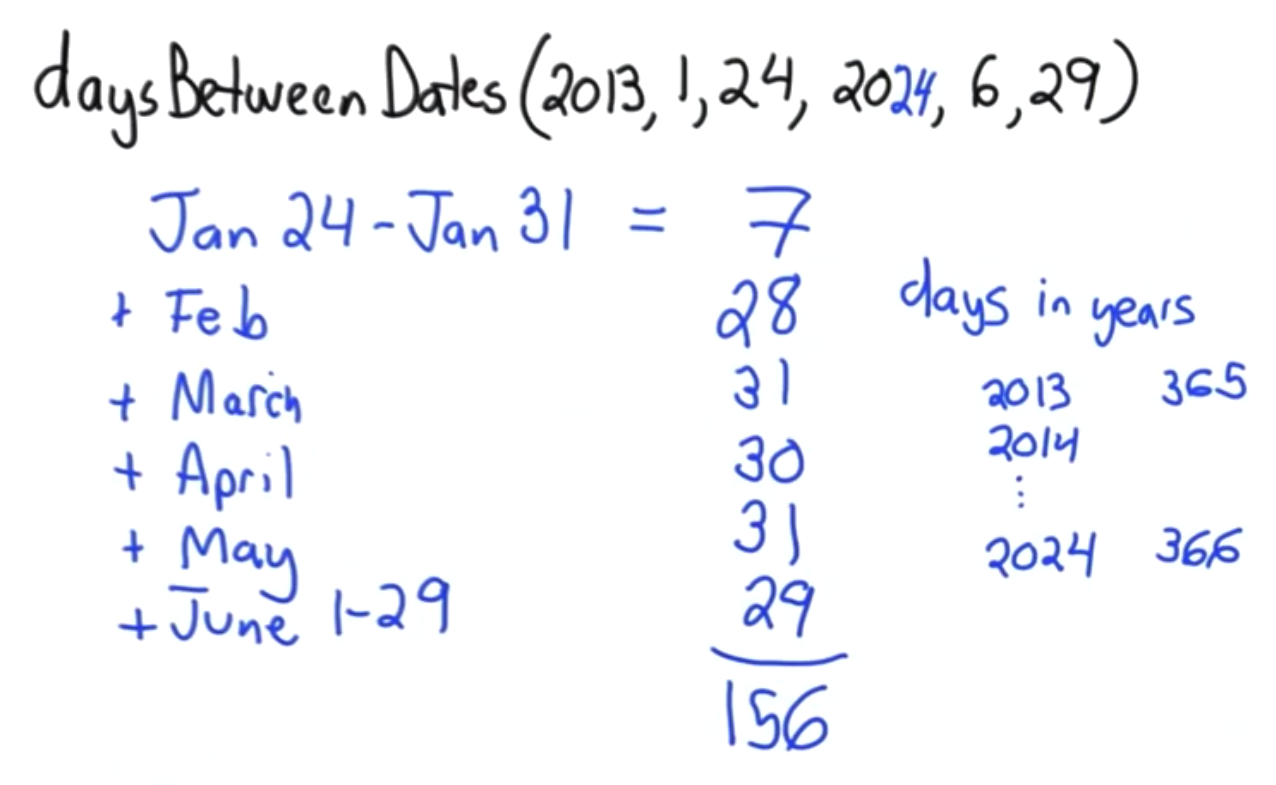 daysBetweenDates(2013, 1, 24, 2024, 6, 29)
Jan 24 - Jan 31 = 7
+ Feb 28
+ March 31
+ April 30
+ May 31
+ June 1-29 29
156
days in years
2013 365
2014
⋮
2024 366